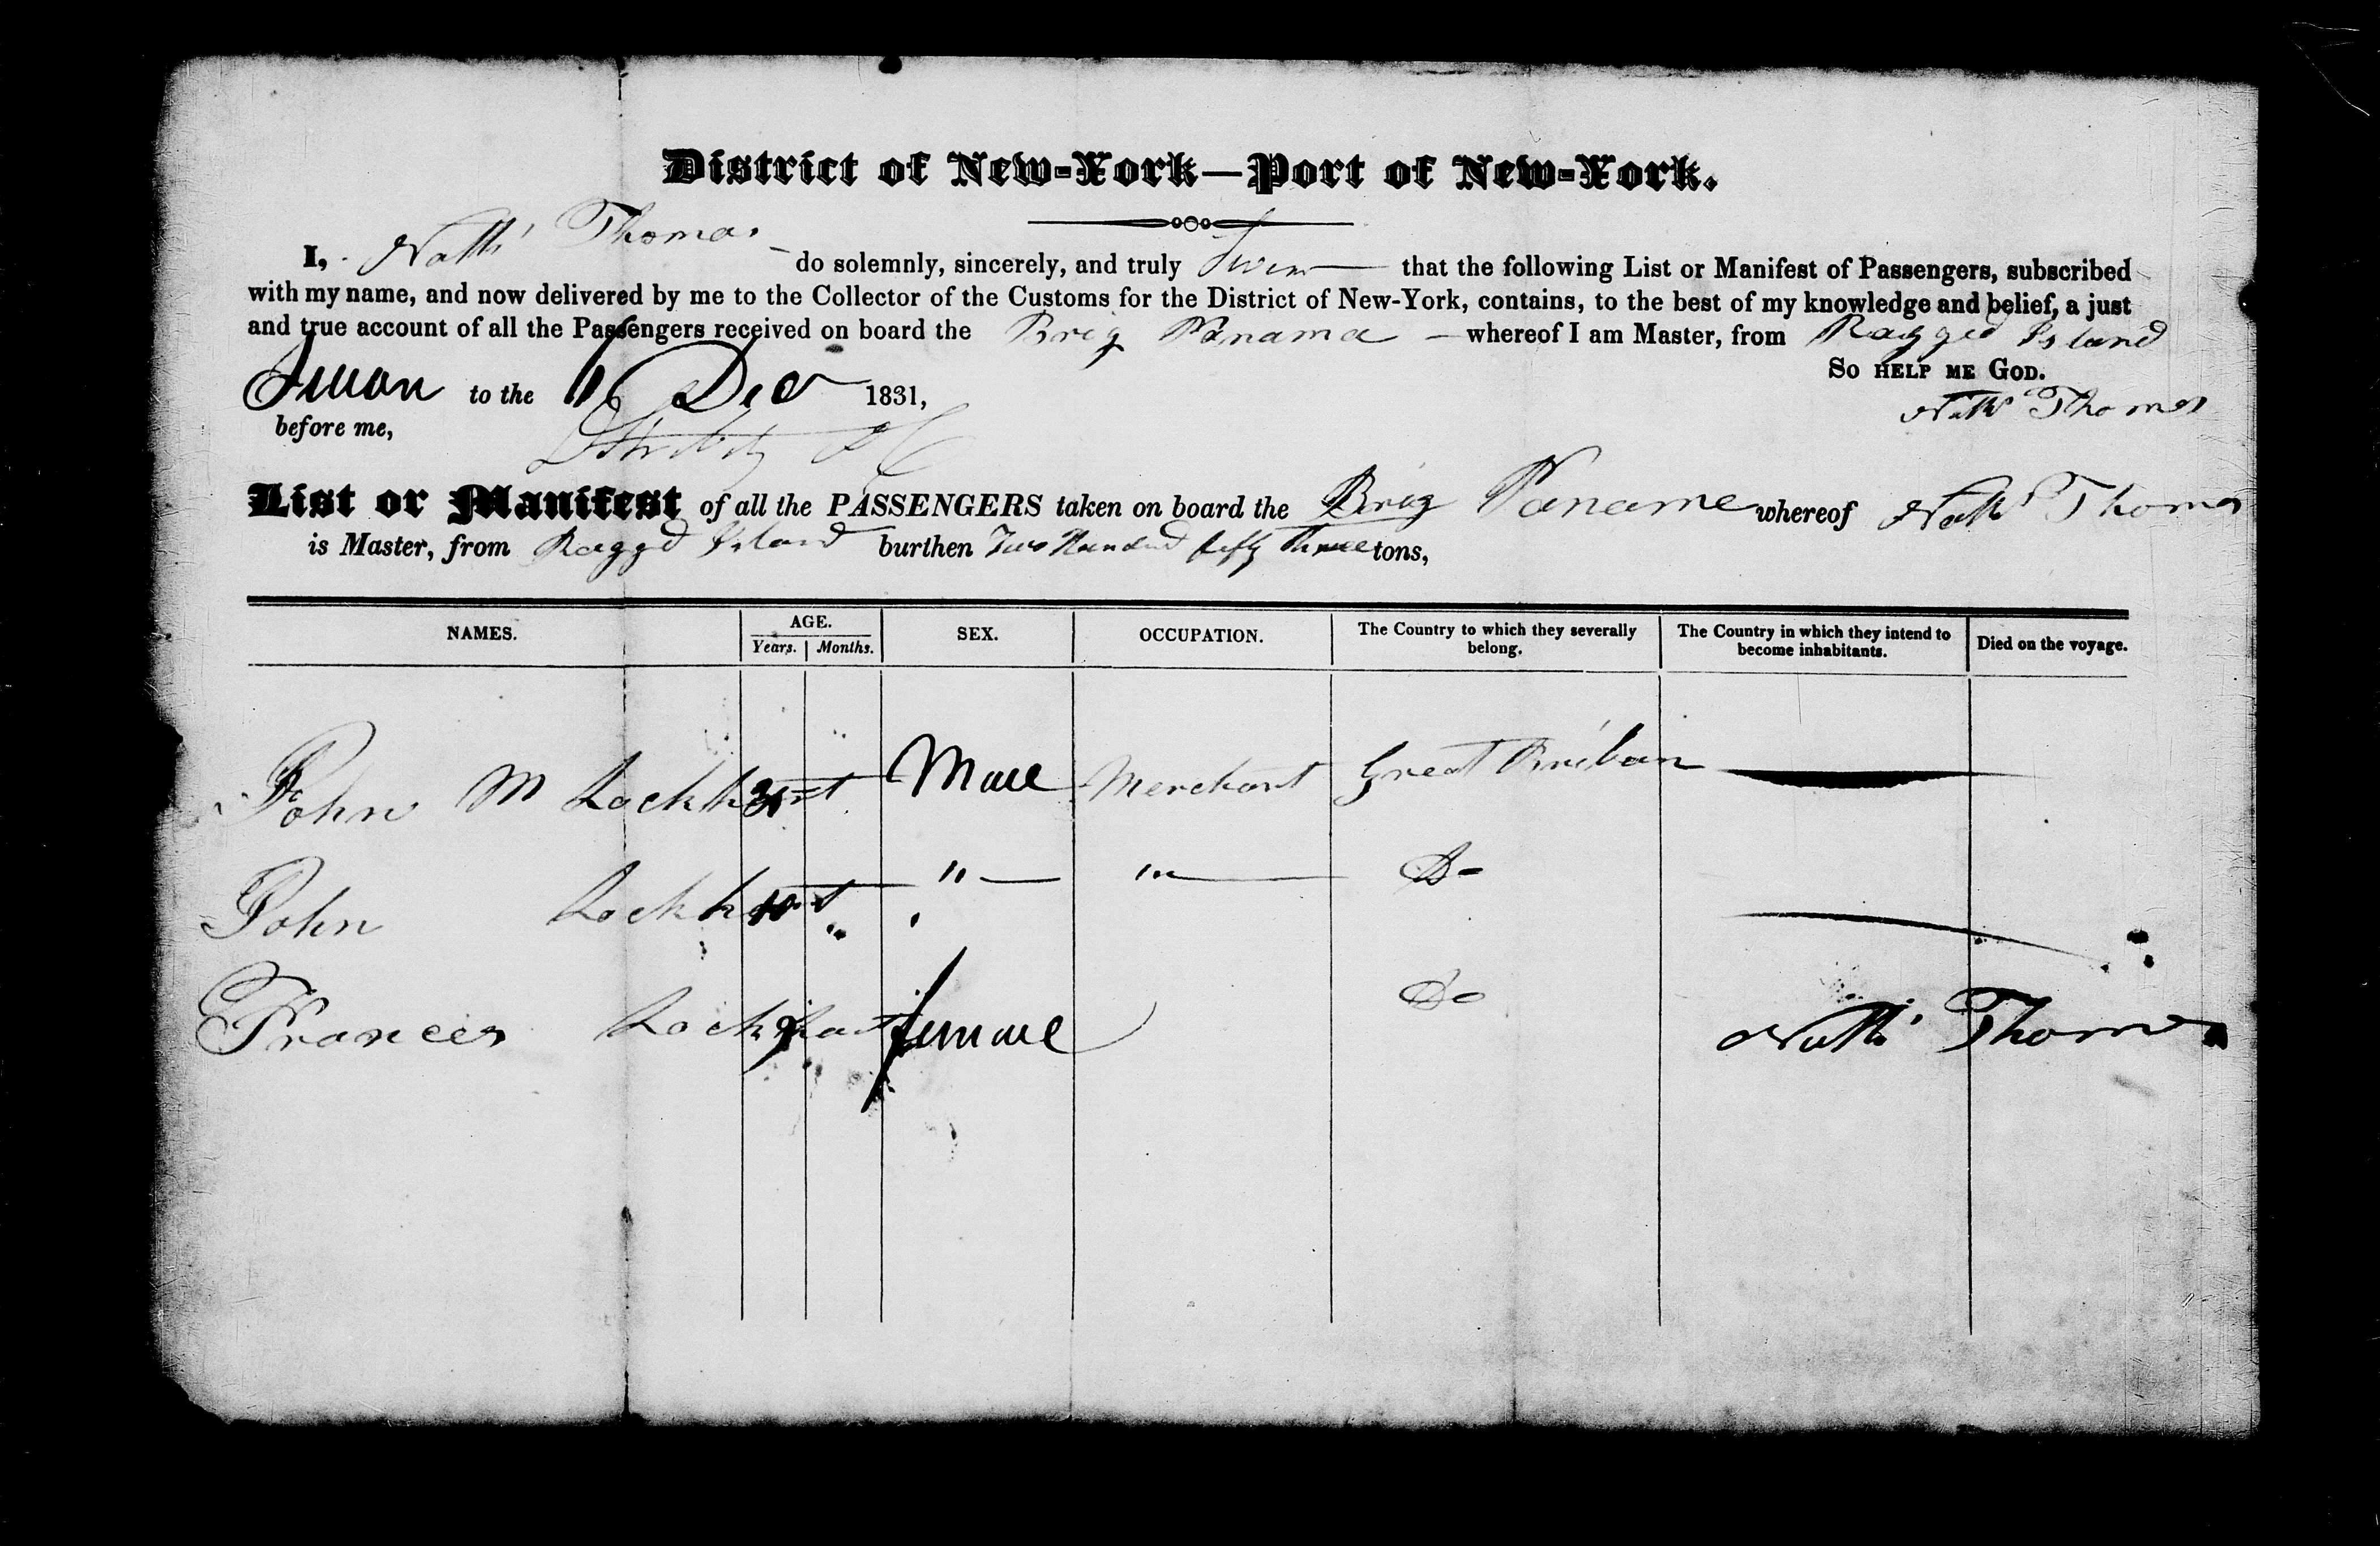 District of New-York—Port of New-York.
I, Nath' Thomas do solemnly, sincerely, and truly Swear that the following List or Manifest of Passengers, subscribed
with my name, and now delivered by me to the Collector of the Customs for the District of New-York, contains, to the best of my knowledge and belief, a just
and true account of all the Passengers received on board the Brig Panama whereof I am Master, from Ragged Island
So HELP ME GOD.
Sworn to the 16 Dec 1831,
Nath' Thomas
before me,
List or Manifest of all the PASSENGERS taken on board the Brig Paname whereof Nath' Thomas
is Master, from Ragged Island burthen Two Hundred fifty Three tons,
NAMES. AGE. Years. Months. SEX. OCCUPATION. The Country to which they severally belong. The Country in which they intend to become inhabitants. Died on the voyage.
John M Lockhart Male Merchant Great Britain
John Lockhart 10 " " Do
Frances Lockhart 9 female Do
Nath' Thomas